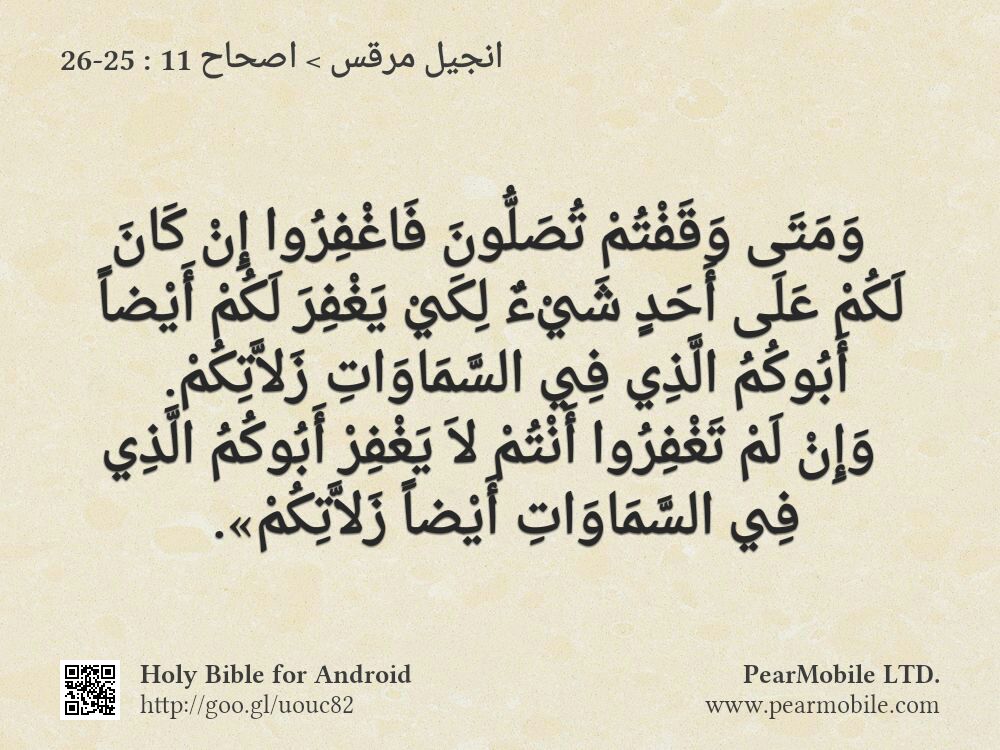 انجيل مرقس > اصحاح 11 : 25-26
وَمَتَى وَقَفْتُمْ تُصَلُّونَ فَاغْفِرُوا إِنْ كَانَ
لَكُمْ عَلَى أَحَدٍ شَيْءٌ لِكَيْ يَغْفِرَ لَكُمْ أَيْضاً
أَبُوكُمُ الَّذِي فِي السَّمَاوَاتِ زَلاَّتِكُمْ.
وَإِنْ لَمْ تَغْفِرُوا أَنْتُمْ لاَ يَغْفِرْ أَبُوكُمُ الَّذِي
فِي السَّمَاوَاتِ أَيْضاً زَلاَّتِكُمْ».
Holy Bible for Android
http://goo.gl/uouc82
PearMobile LTD.
www.pearmobile.com